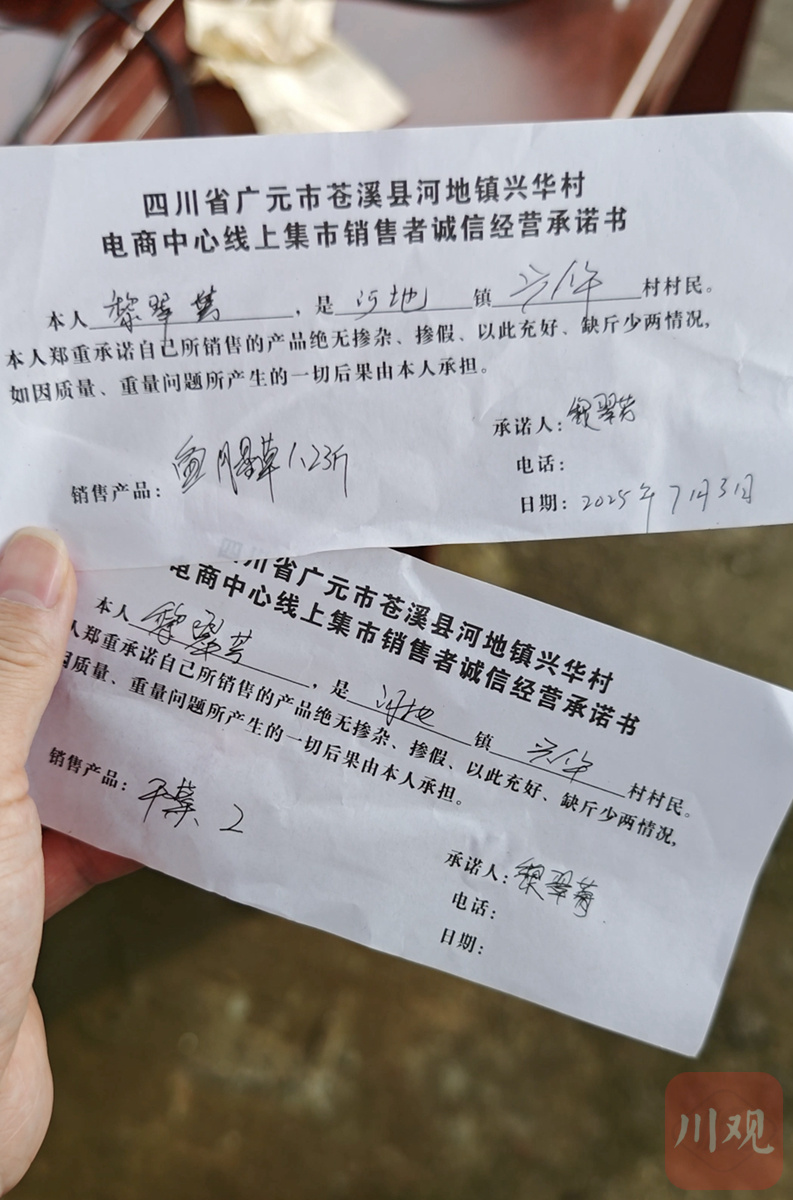 四川省广元市苍溪县河地镇兴华村
电商中心线上集市销售者诚信经营承诺书
本人黎翠芳，是河地镇兴华村村民。
本人郑重承诺自己所销售的产品绝无掺杂、掺假、以此充好、缺斤少两情况，
如因质量、重量问题所产生的一切后果由本人承担。
承诺人：黎翠芳
电话：
销售产品：鱼腥草1.23斤
日期：2025年7月31日
四川省广元市苍溪县河地镇兴华村
电商中心线上集市销售者诚信经营承诺书
本人黎翠芳，是河地镇兴华村村民。
人郑重承诺自己所销售的产品绝无掺杂、掺假、以此充好、缺斤少两情况，
因质量、重量问题所产生的一切后果由本人承担。
销售产品：干 2
承诺人：黎翠芳
电话：
日期：
川观